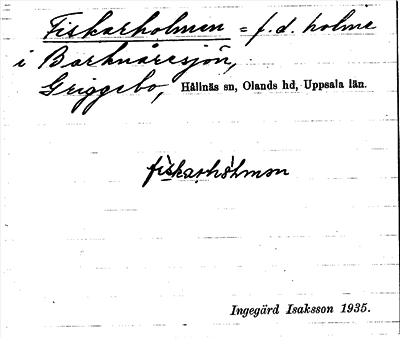 Fiskarholmen = f. d. holme
i Barknåresjön,
Griggebo, Hållnäs sn, Olands hd, Uppsala län.
fìskarhólmən
Ingegärd Isaksson 1935.